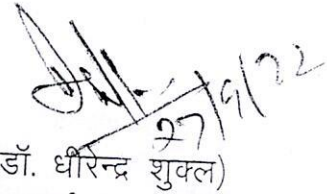 27/9/22
डॉ. धीरेन्द्र शुक्ल)